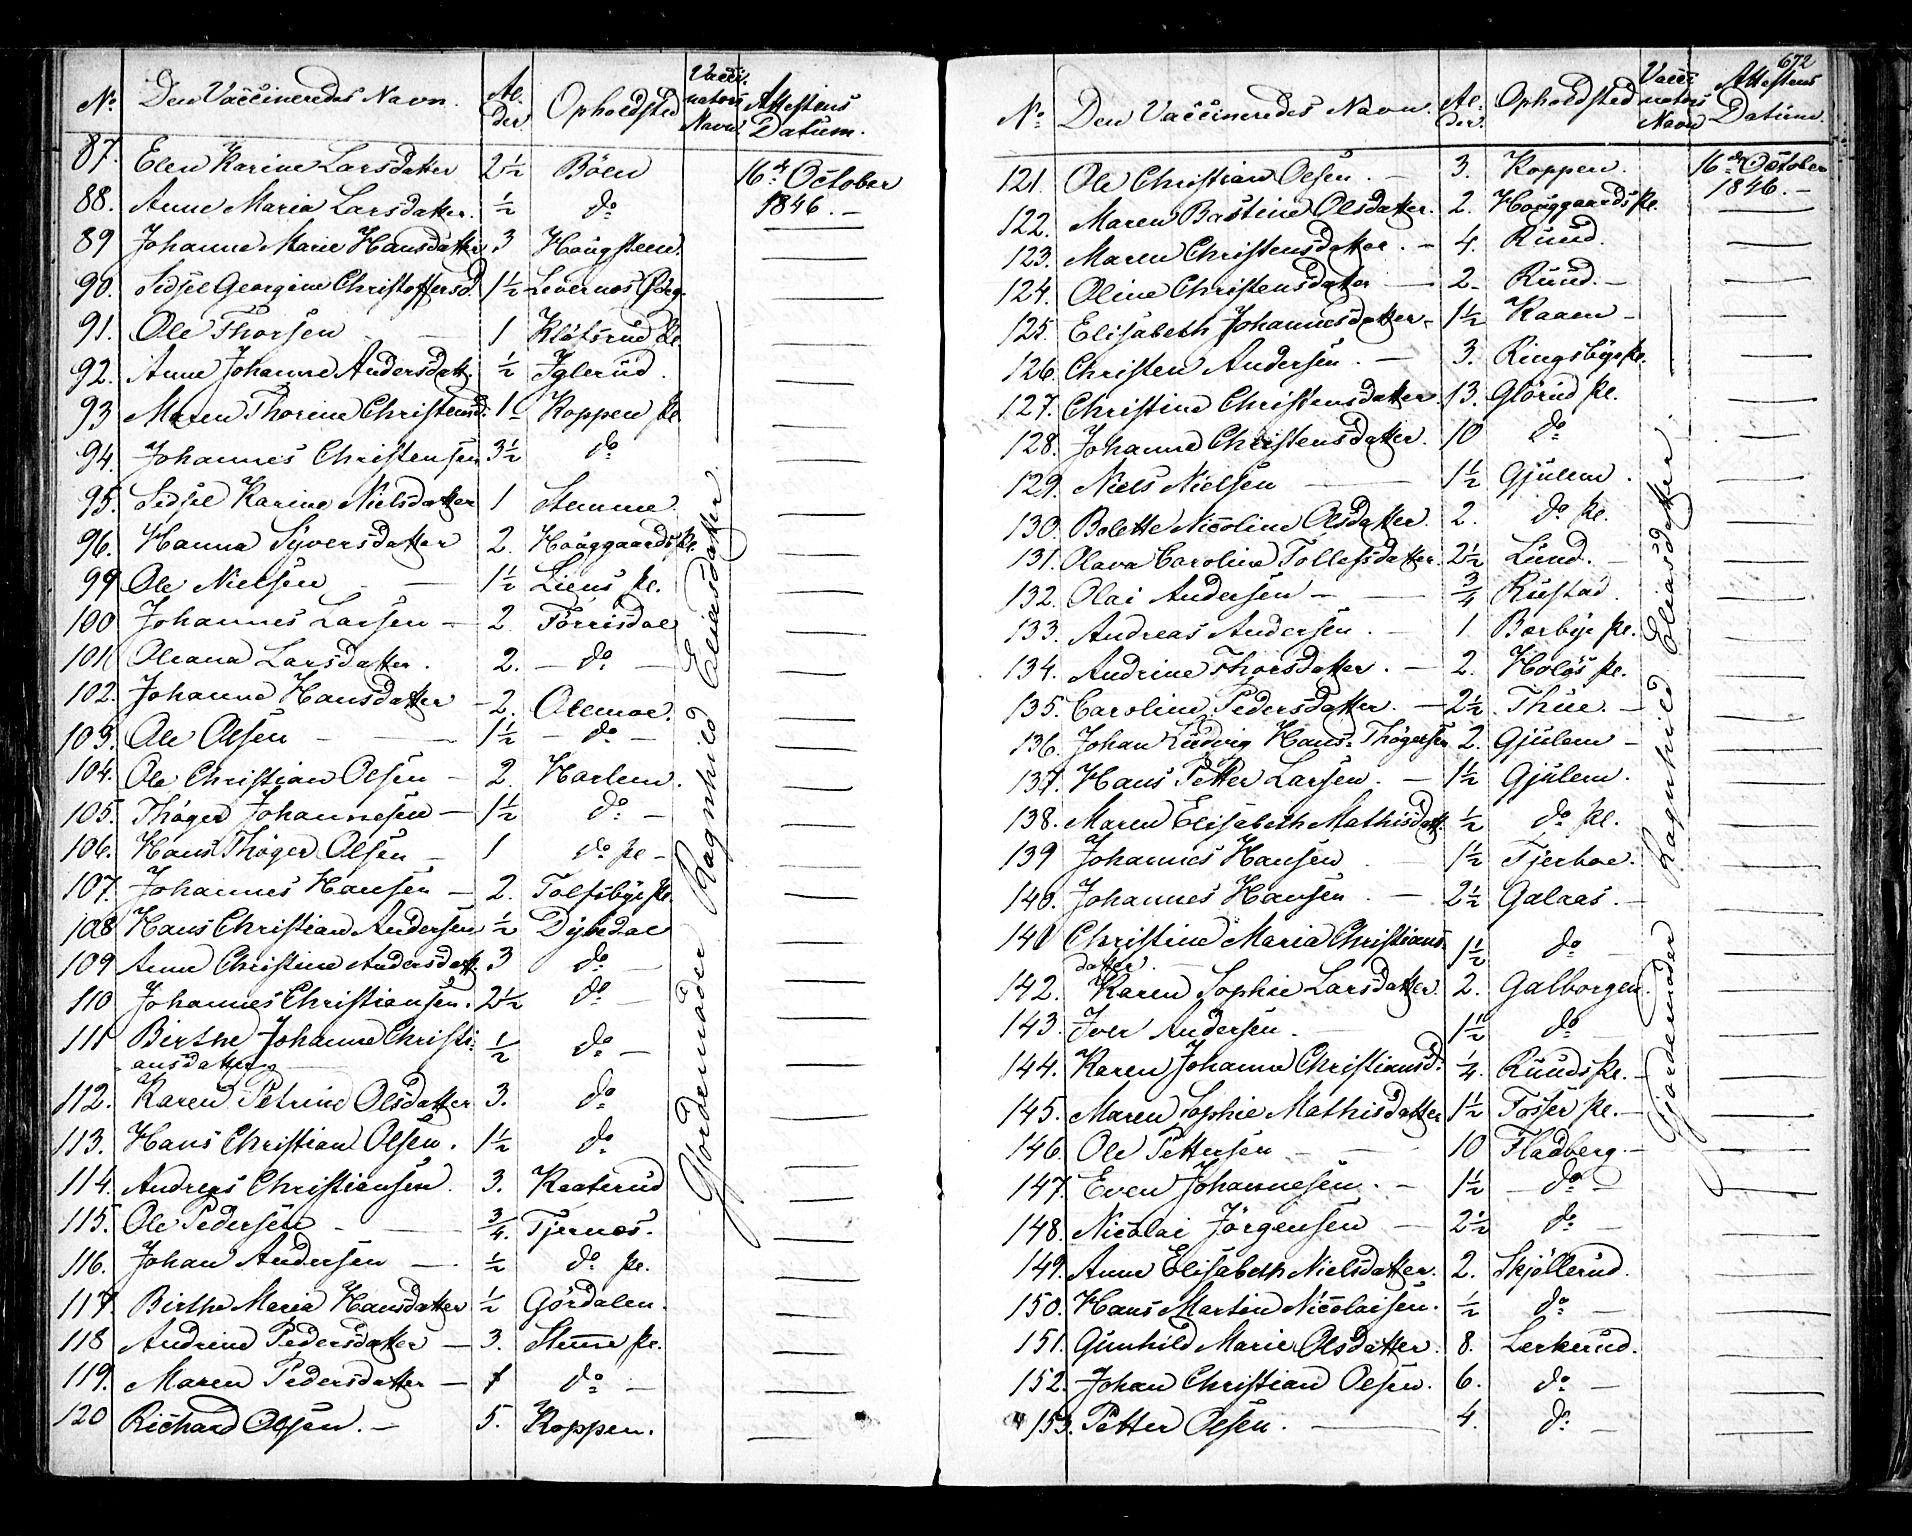 No Den Vaccineredes Navn. Al-der Opholdsted Vacci-nateurs Navn Attestens Datum.
87. Elen Karine Larsdatter 2½ Böen 16de October
88. Anne Maria Larsdatter. ½ do 1846. —
89 Johanne Marie Hansdatter 3 Hougsteen.
90. Sidsel Georgine Christoffersd. 1½
91. Ole Thorsen 1 Klófsrud Pl.
92. Anne Johanne Andersdatt. ½ Iglerud.
93 Maren Thorine Christensd. 1½ Koppen Pl.
94. Johannes Christensen 3½ do
95. Sidsel Karine Nielsdatter 1 Stumne.
96. Hanna Syversdatter 2. Houggaards Pl.
99 Ole Nielsen 1½ Liens Pl.
100 Johannes Larsen — 2 Torrisdal
101. Oleana Larsdatter. 2. — do —
102. Johanne Hansdatter — 2. Olemoe.
103. Ole Olsen — 1½ — do —
104. Ole Christian Olsen — 2. Harlem.
105. Thöger Johannesen — 1½ do —
106. Hans Thöger Olsen — 1 do Pl —
107. Johannes Hansen — 2. Tolfsbye Pl.
108 Hans Christian Andersen ½ Dybedal
109 Anne Christine Andersdatt. 3 do —
110 Johannes Christiansen. 2½ do —
111 Birthe Johanne Christi-
ansdatter ½ do —
112. Karen Petrine Olsdatter 3. do
113. Hans Christian Olsen. 1½ do
114. Andreas Christiansen. 3. Kaaterud
115. Ole Pedersen — ¾. Tjernes.
116. Johan Andersen — ½ do Pl.
117. Birthe Maria Hansdatter ½ Gördalen.
118 Andrine Pedersdatter — 3. Stumne Pl.
119. Maren Pedersdatter — 1 do —
120 Richard Olsen. — 5. Koppen.
Gjordemoder Ragnhild Eliasdatter
672
No Den Vaccineredes Navn. Al-der. Opholdsted Vacci-nateurs Navn Attestens Datum.
121. Ole Christian Olsen. — 3. Koppen. 16de October
122. Maren Bastine Olsdatter. 2. Houggaards Pl. 1846. —
123. Maren Christensdatter. — 4. Ruud.
124. Oline Christensdatter — 2. Ruud. —
125. Elisabeth Johannesdatter — 1½ Kaaen —
126. Christen Andersen. — 3. Ringsbye Pl.
127. Christine Christensdatter. 13. Glörud Pl.
128. Johanne Christensdatter. 10 do
129. Niels Nielsen — 1½ Gjulem.
130. Bolette Nicoline Olsdatter. 2. do Pl.
131. Olava Caroline Tollefsdatter. 2½ Lund. —
132. Olai Andersen — ¾ Rustad.
133. Andreas Andersen. — 1. Bærbye Pl.
134. Andrine Thorsdatter. — 2. Holøs Pl.
135. Caroline Pedersdatter. — 2½ Thue. —
136. Johan Ludvig Hans-Thögersen 2. Gjulem —
137. Hans Petter Larsen. — 1½ Gjulem.
138. Maren Elisabeth Mathisdatt. ½ do Pl.
139 Johannes Hansen 1½ Tjerboe.
140. Johannes Hansen. — 2½ Galaas. —
141 Christine Maria Christians
datter. 1½ do —
142. Karen Sophie Larsdatter. 2. Galborgen.
143. Iver Andersen. 1½ do
144. Karen Johanne Christiansd. ¼ Ruuds Pl. —
145. Maren Sophie Mathisdatter 1½ Tosser Pl. —
146. Ole Pettersen — 10 Fladberg. —
147. Even Johannesen. — 1½ — do —
148. Nicolai Jörgensen — 2½ do —
149. Anne Elisabeth Nielsdatter. 2. Skjöllerud.
150. Hans Martin Nicolaisen. ½ do —
151. Gunhild Marie Olsdatter. 8. Lerkerud.
152. Johan Christian Olsen. 6. do —
153. Petter Olsen. — 4. do
Gjordemoder Ragnhild Eliasdatter.